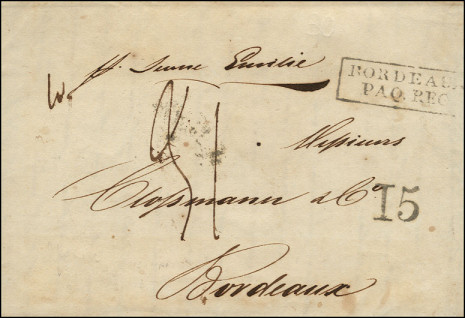 p. Jeune Emilie
BORDEAUX
PAQ. REG
Messieurs
Clossmann & Co
15
Bordeaux